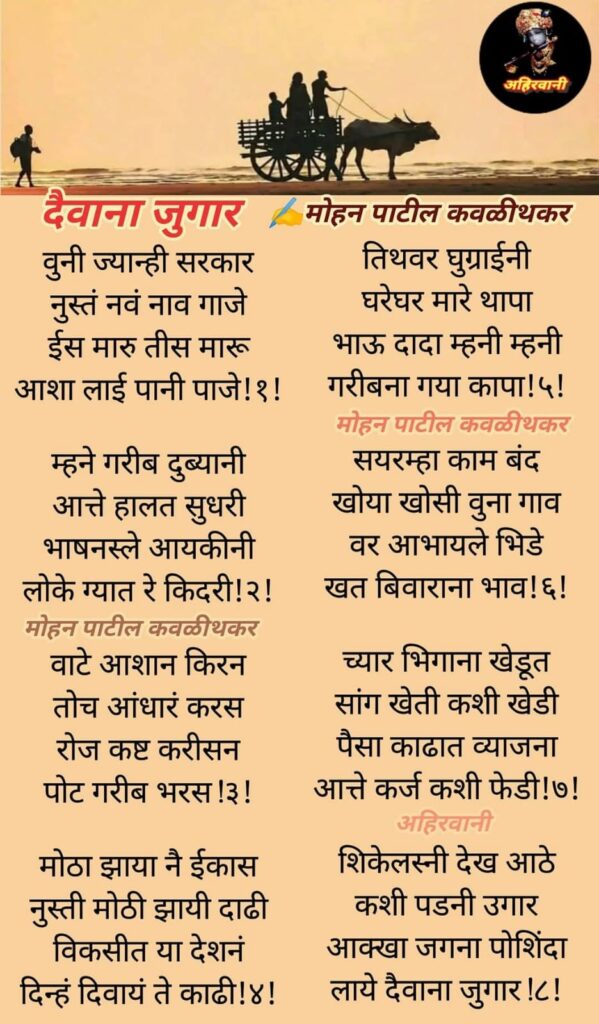 अहिरवानी
दैवाना जुगार
✍️मोहन पाटील कवळीथकर
वुनी ज्यान्ही सरकार
नुस्तं नवं नाव गाजे
ईस मारु तीस मारू
आशा लाई पानी पाजे!१!
म्हने गरीब दुब्यानी
आत्ते हालत सुधरी
भाषनस्ले आयकीनी
लोके ग्यात रे किदरी!२!
मोहन पाटील कवळीथकर
वाटे आशान किरन
तोच आंधारं करस
रोज कष्ट करीसन
पोट गरीब भरस!३!
मोठा झाया नै ईकास
नुस्ती मोठी झायी दाढी
विकसीत या देशनं
दिन्हं दिवायं ते काढी!४!
तिथवर घुग्राईनी
घरेघर मारे थापा
भाऊ दादा म्हनी म्हनी
गरीबना गया कापा!५!
मोहन पाटील कवळीथकर
सयरम्हा काम बंद
खोया खोसी वुना गाव
वर आभायले भिडे
खत बिवाराना भाव!६!
च्यार भिगाना खेडूत
सांग खेती कशी खेडी
पैसा काढात व्याजना
आत्ते कर्ज कशी फेडी!७!
अहिरवानी
शिकेलस्नी देख आठे
कशी पडनी उगार
आक्खा जगना पोशिंदा
लाये दैवाना जुगार!८!